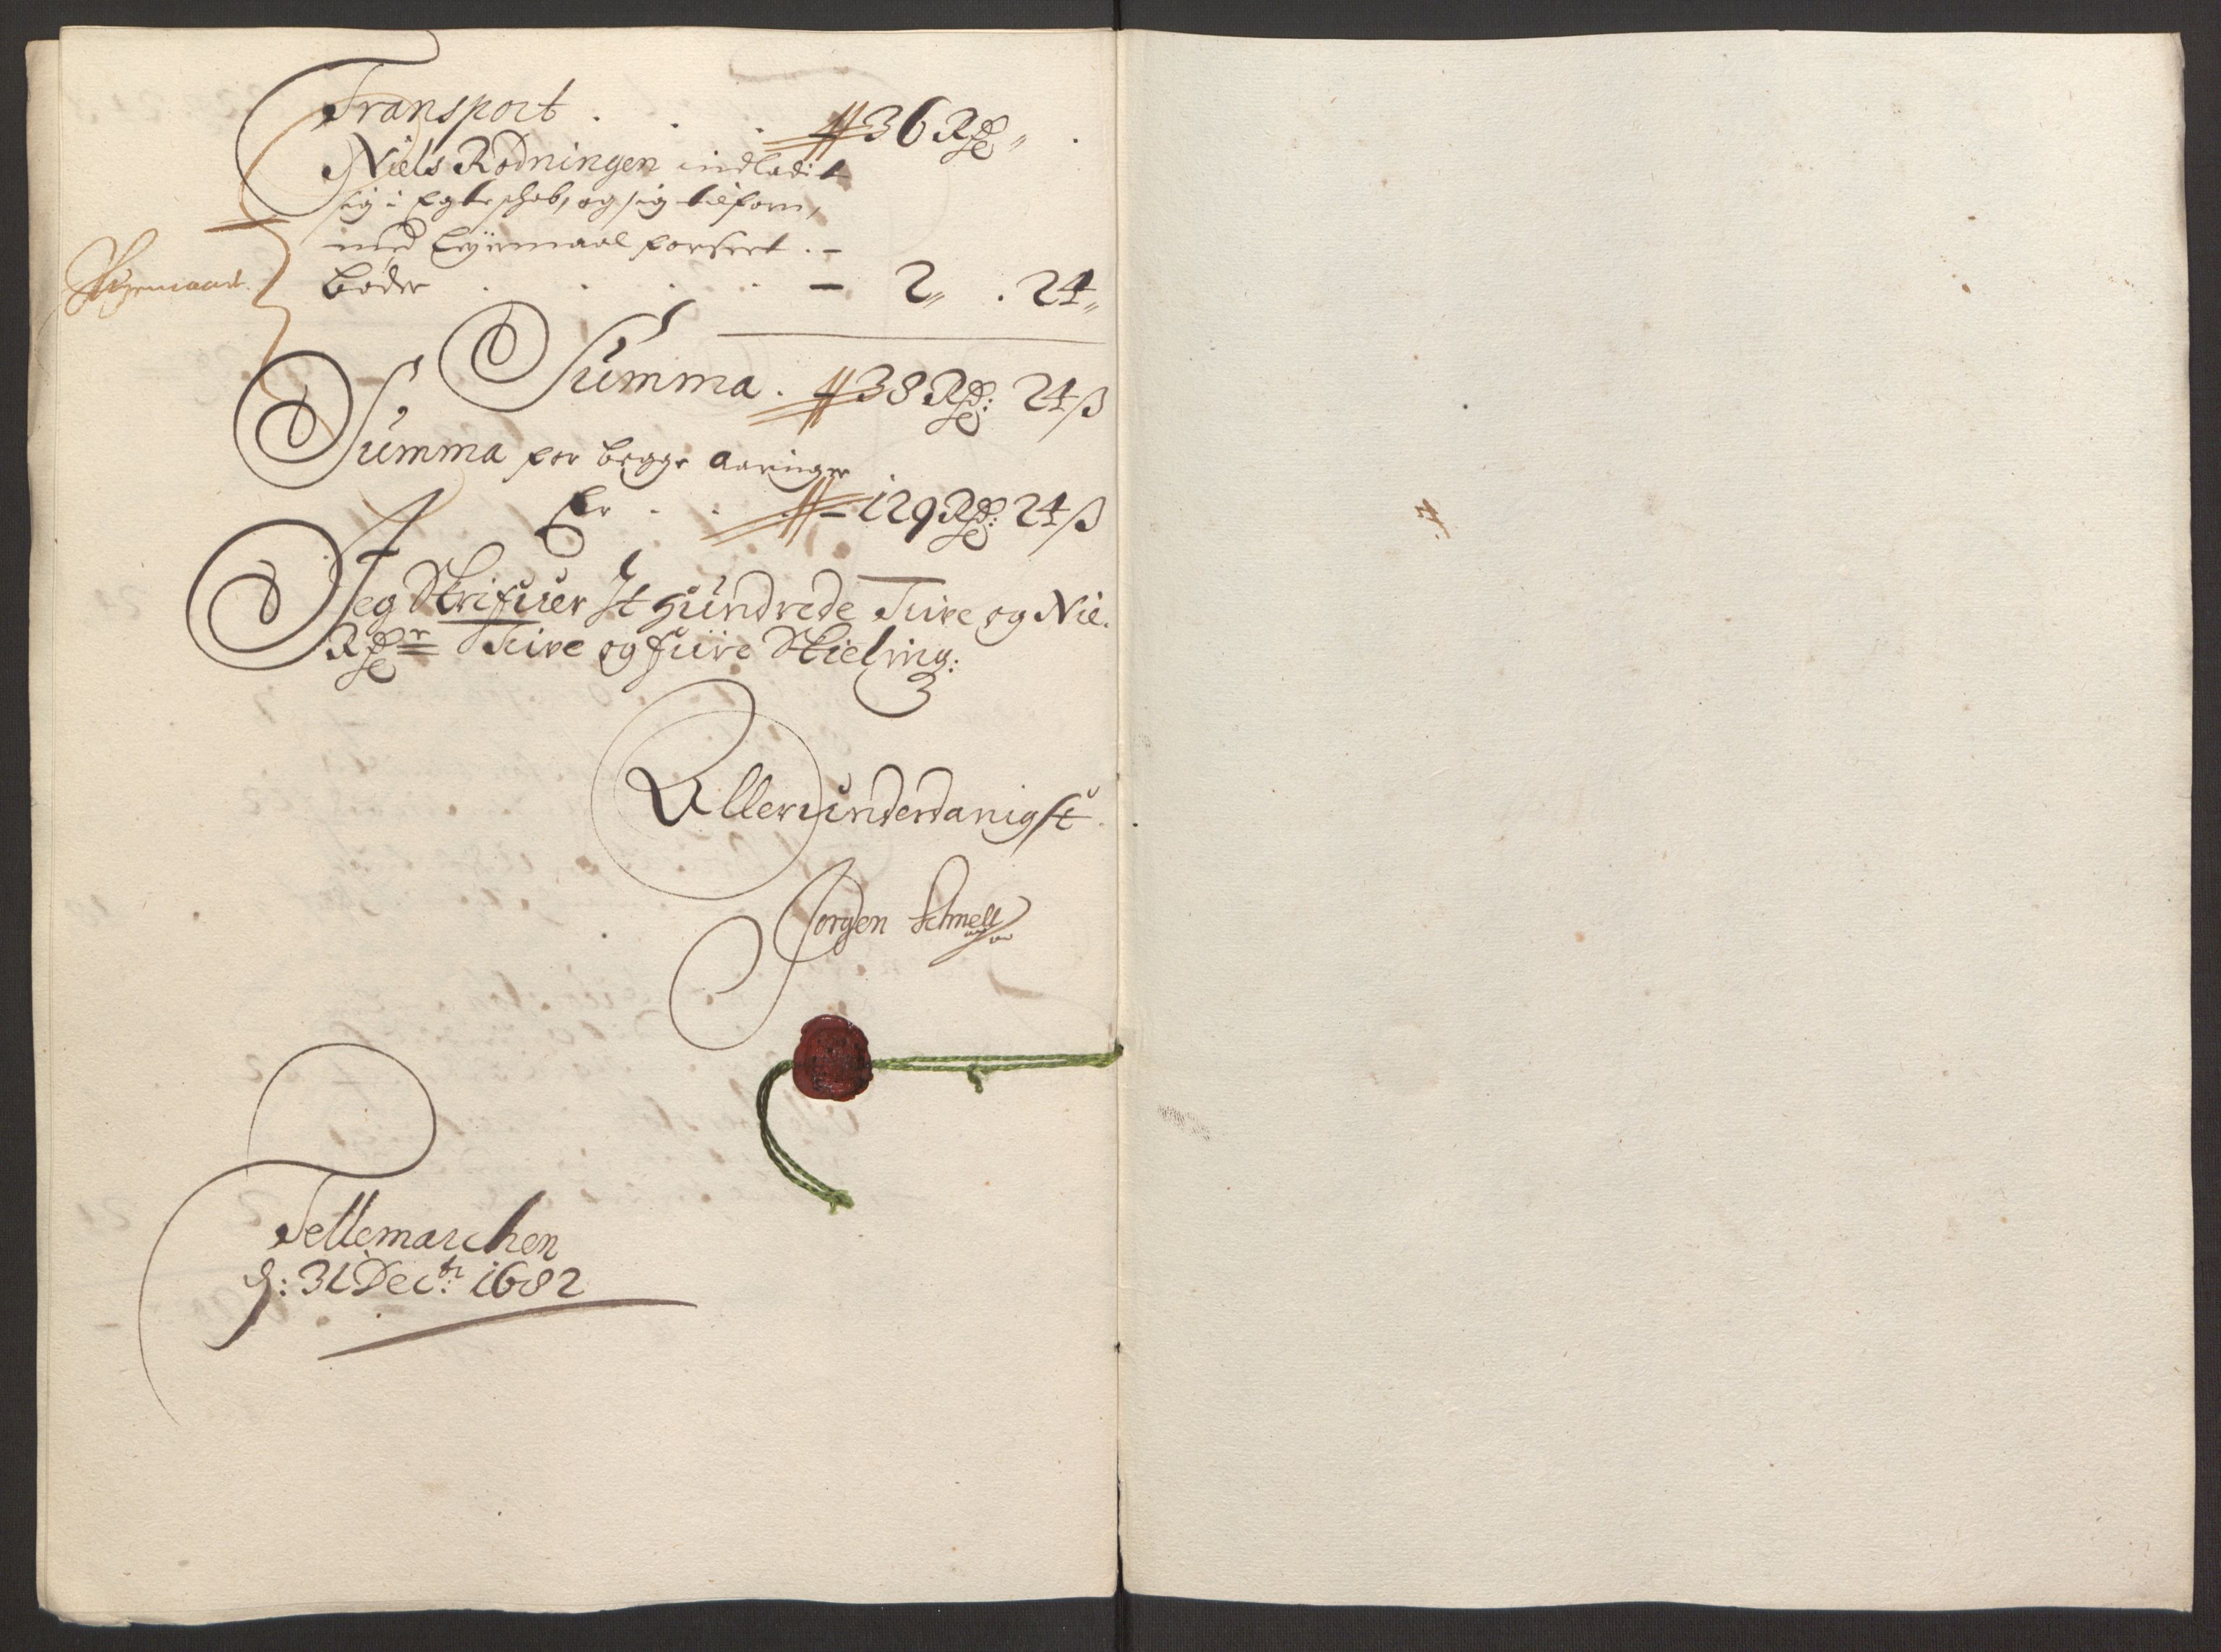 Transport . . . 36 Rdr „ .
Niels Rodningen indladit
sig i Egteschab, og sig tilforn,
med Leyermaal forseet . –
bøder . . . . – 2 „ . 24 „
Summa . 38 Rdr: 24 ß
Summa for begge Aaringer
Er . . . – 129 Rdr: 24 ß
Jeg Skrifuer It Hundrede Tiüve og Nie.
Rdr Tiuve og fiire Skieling:
Allerunderdanigst
Jorgen Schnell
Tellemarchen
d: 31 Decbr: 1682